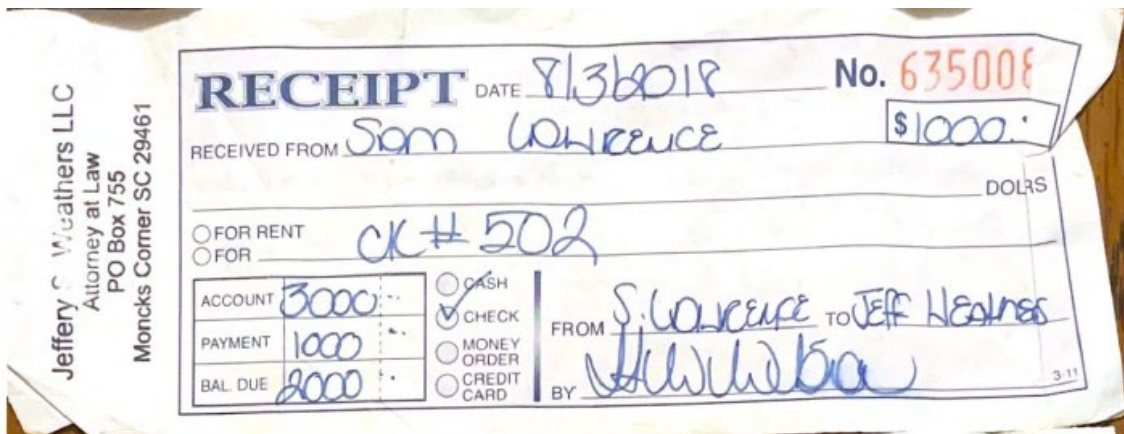 Jeffery S Weathers LLC
Attorney at Law
PO Box 755
Moncks Corner SC 29461
RECEIPT DATE 8/3/2018 No. 635008
RECEIVED FROM Sam Lawrence $1000.
DOLRS
FOR RENT
FOR CK# 502
ACCOUNT 3000
PAYMENT 1000
BAL. DUE 2000
CASH
CHECK
MONEY ORDER
CREDIT CARD
FROM S. Lawrence TO Jeff
BY
3-11